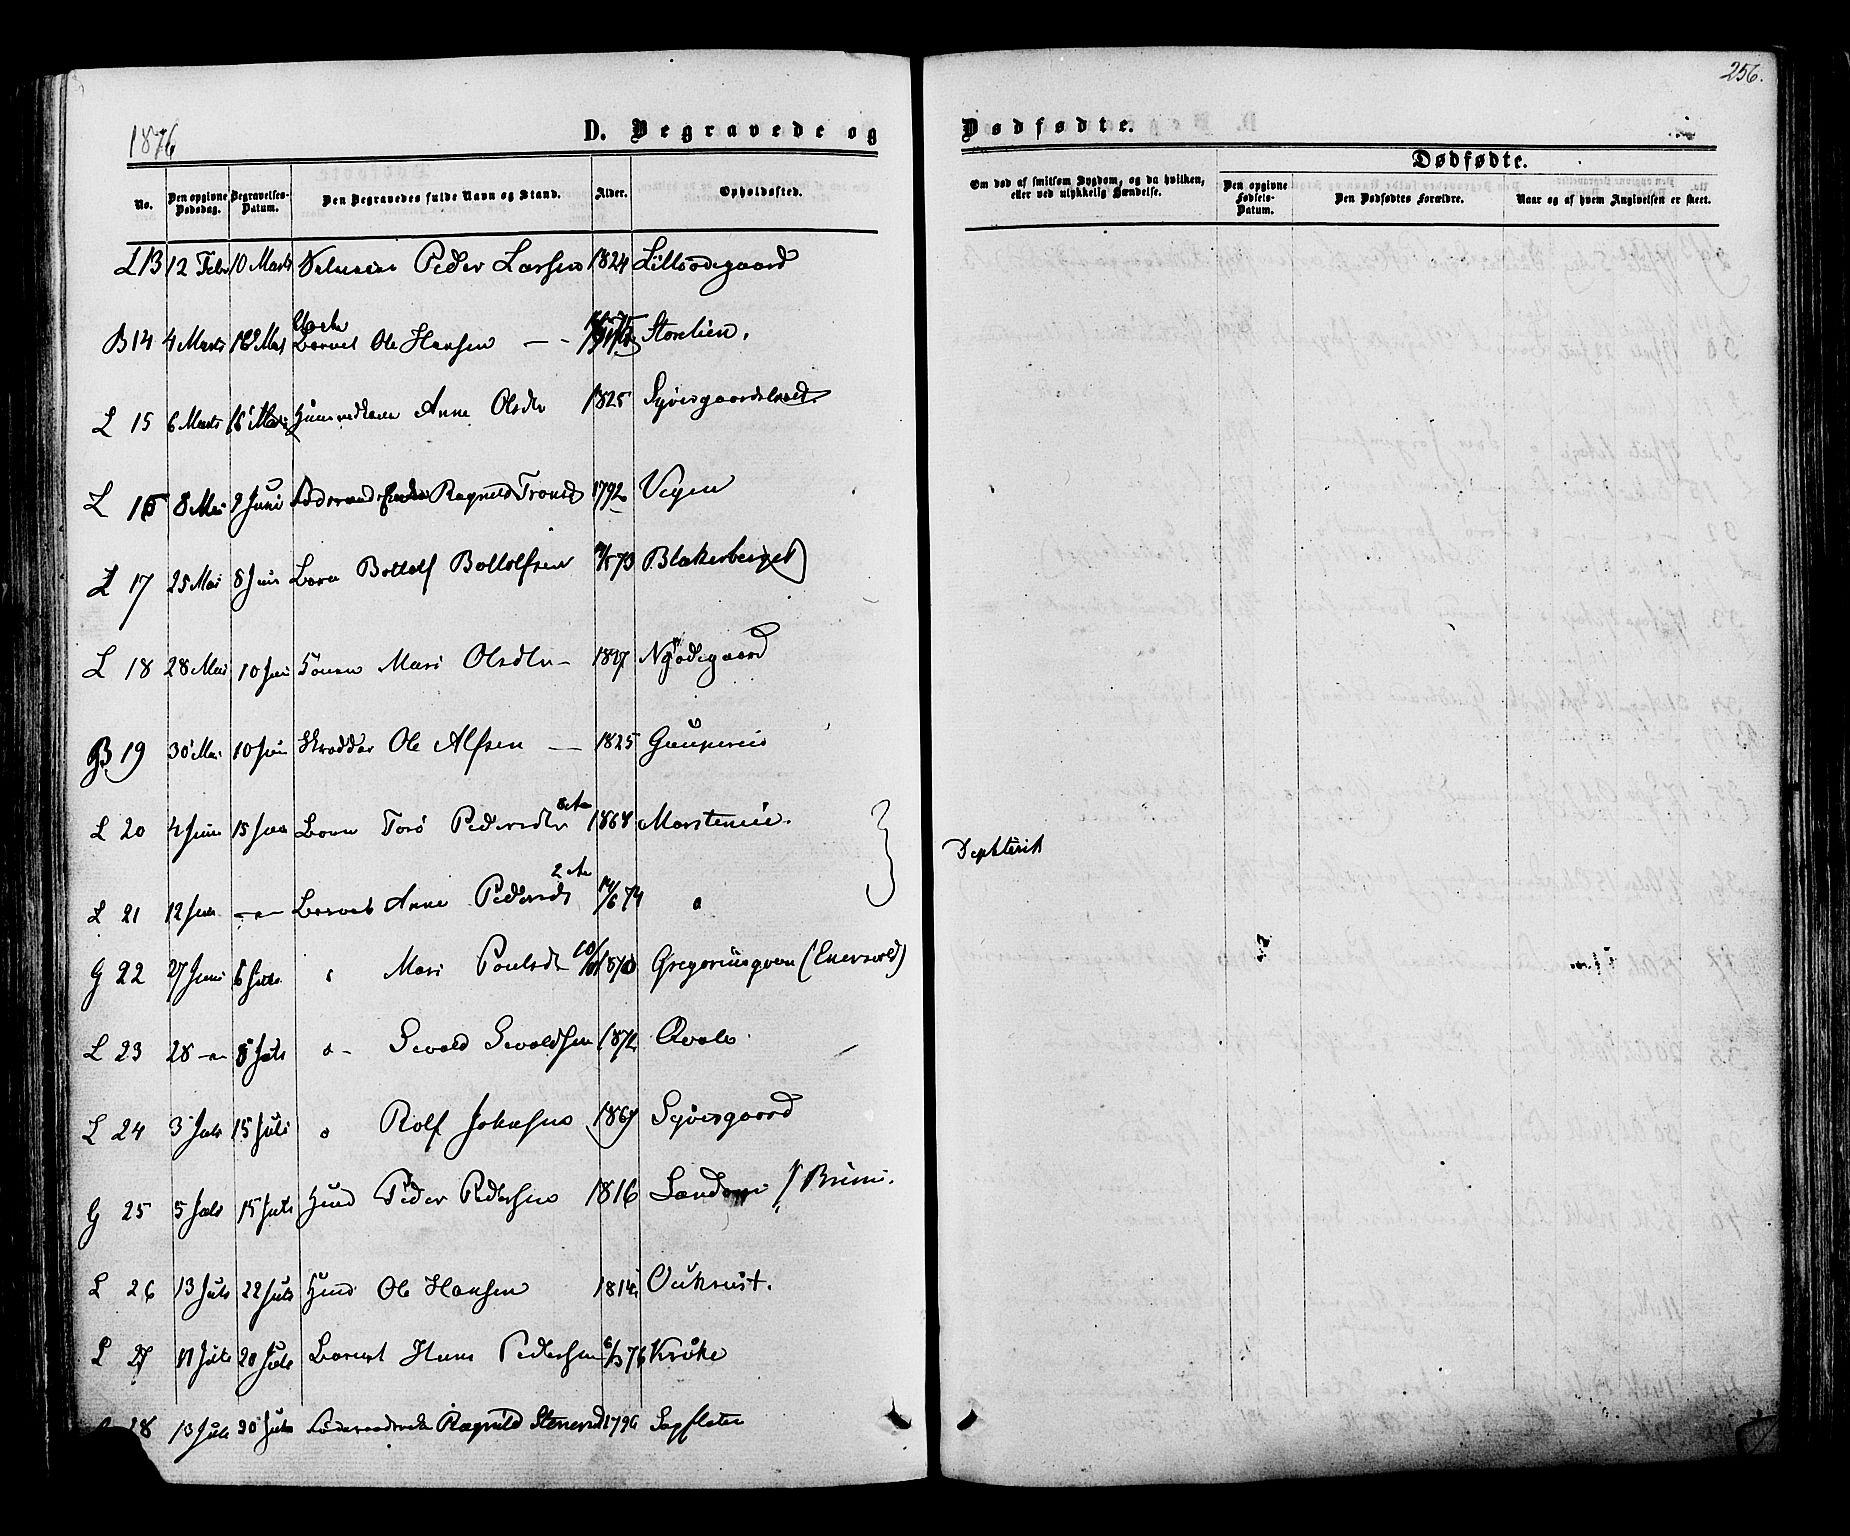 256.
1876
D. Begravede og
Dødfødte.
No.
Den opgivne Dødsdag.
Begravelses-Datum.
Den Begravedes fulde Navn og Stand.
Alder.
Opholdssted.
Om død af smitsom Sygdom, og da hvilken, eller ved ulykkelig Hændelse.
Dødfødte.
Den opgivne Fødsels-Datum.
Den Dødfødtes Forældre.
Naar og af hvem Angivelsen er skeet.
L 13 12 Febr 10 Marts Peder Larsen 1824 Lilloodegaard
B 14 4 Marts Barnet Ole Hansen — - Storelien.
L 15 6 Marts Anne Olsdtr 1825
L 16 8 Mai 9 Juni Ragnild Tronsd 1792 Vigen
L 17 25 Mai 8 Juni Barn Bottolf Bottolfsen 873 Blakerberget
L 18 28 Mai 10 Juni Konen Mari Olsdtr — 1827 Nyødegaard
B 19 30 Mai 10 Juni Skrædder Ole Alfsen — 1825
L 20 4 Juni 15 Juni Barn Torø Pedersdtr 1868 Marsteneie.
Dephterit
L 21 12 Juni —"— Barnet Anne Pedersdt 2 14/6 74 "
G 22 27 Juni 6 Juli " Mari Poulsdt 1870 Gregoriusgven (Enersvold)
L 23 28 —"— 8 Juli " Sevald Sevaldsen 1872 Qvale
L 24 3 Juli 15 Juli " Rolf Johnsen 1867 Syversgaard
G 25 5 Juli 15 Juli Husmd Peder Pedersen 1816
L 26 13 Juli 22 Juli Husmd Ole Hansen 1814 Oukrust.
L 27 17 Juli 20 Juli Barnet Hans Pedersen 76 Krøke
28 13 Juli 20 Juli Ragnild Stenersd 1796 Sagflaten